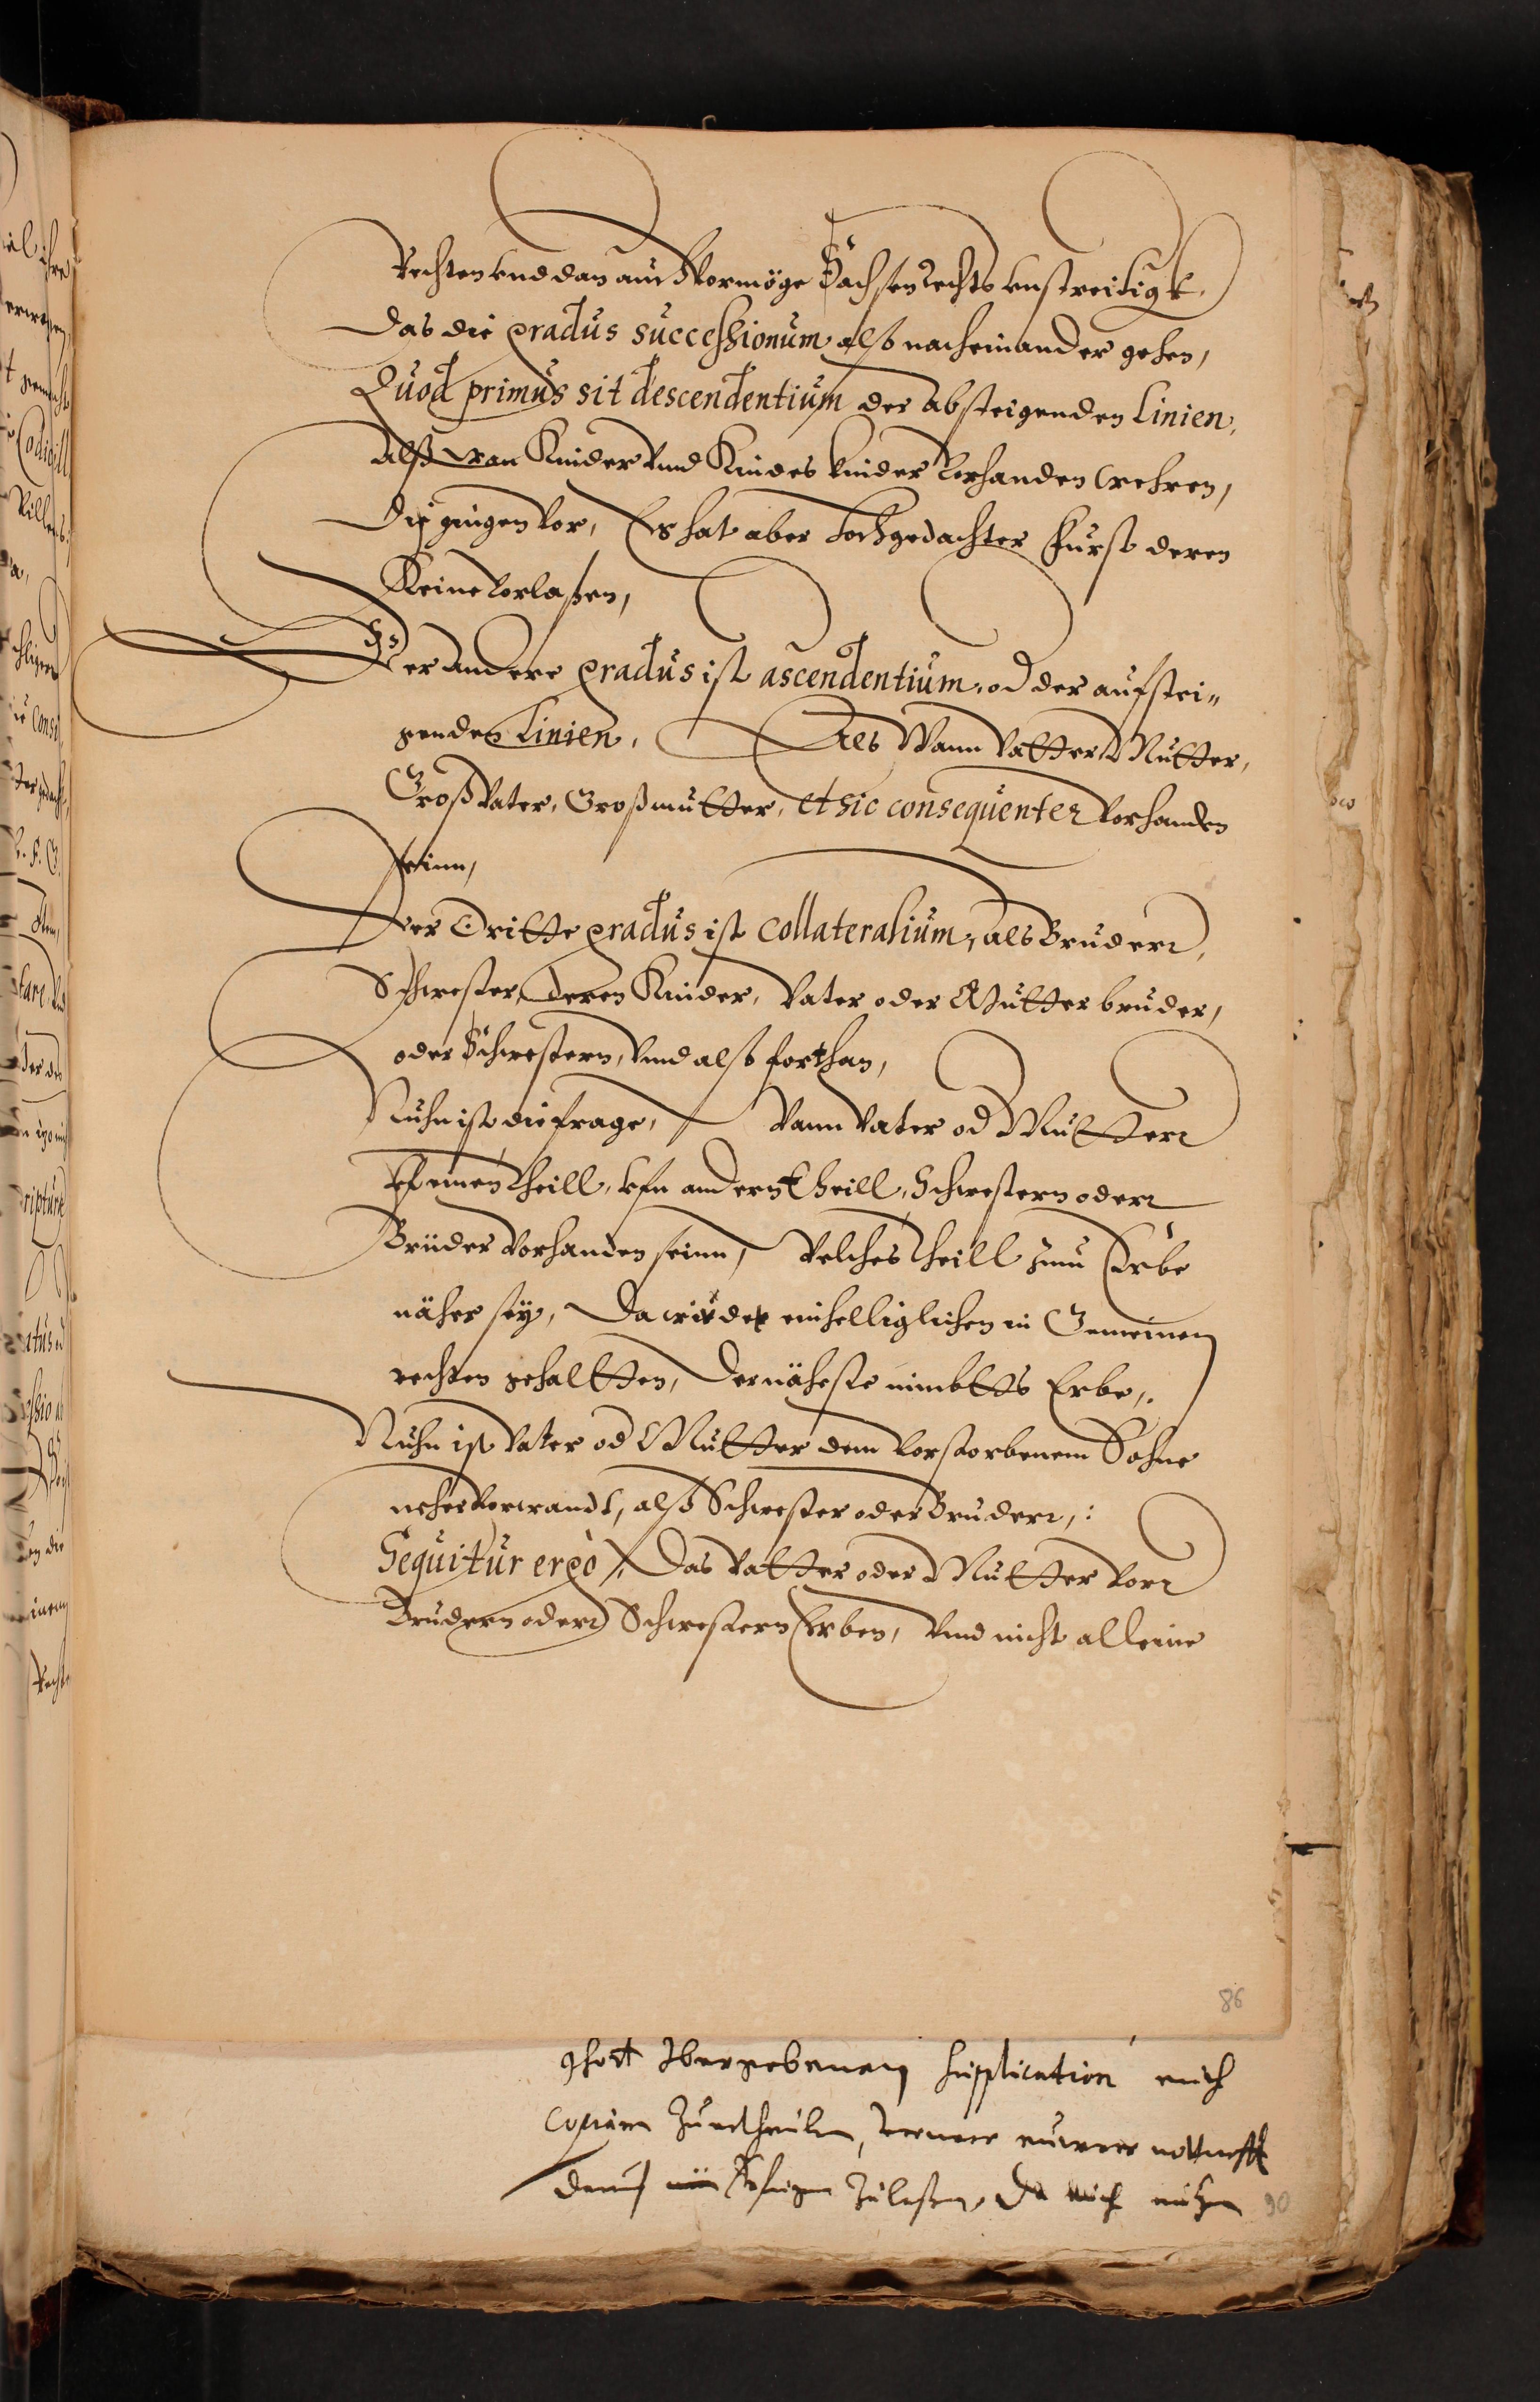 Rechten vnd dan auch Vormöge Sachsenrechts vnstreitigk,
Das die gradus successionum also nacheinander gehen,
Quod primus sit descendentium der absteigenden Linien,
Alß wan Kinder vnd Kindes kinder vorhanden wehren,
Die gingen vor, Es hat aber hochgedachter Furst deren
Keine vorlaßen,
Der andere gradus ist ascendentium, od der aufstei„
genden Linien, Als Wann Vatter, Mutter,
Großvater, Großmutter, et sic consequenter vorhanden
seinn,
Der Dritte gradus ist Collateralium, als Bruder,
Schwester, deren Kinder, Vater oder Mutter bruder,
oder Schwestern, vnd also forthan,
Nuhn ist die frage, Wann Vater od Mutter
vf einen theill, vfn andern theill, Schwestern oder
Brüder vorhanden seinn, Welches theill zum Erbe
näher sey, Da wirdt einhelliglichen in Gemeinen
rechten gehaltten, Der näheste nimbtts Erbe,.
Nuhn ist Vater od Mutter dem vorstorbenem Sohne
neher vorwandt, alß Schwester oder Bruder,:
Sequitur ergò, Das Vatter oder Mutter vor
Brudern oder Schwestern Erben, vnd nicht alleine
86
vbergebenen supplication mich
copiam zuertheilen, notturfft
zulaßen,
90